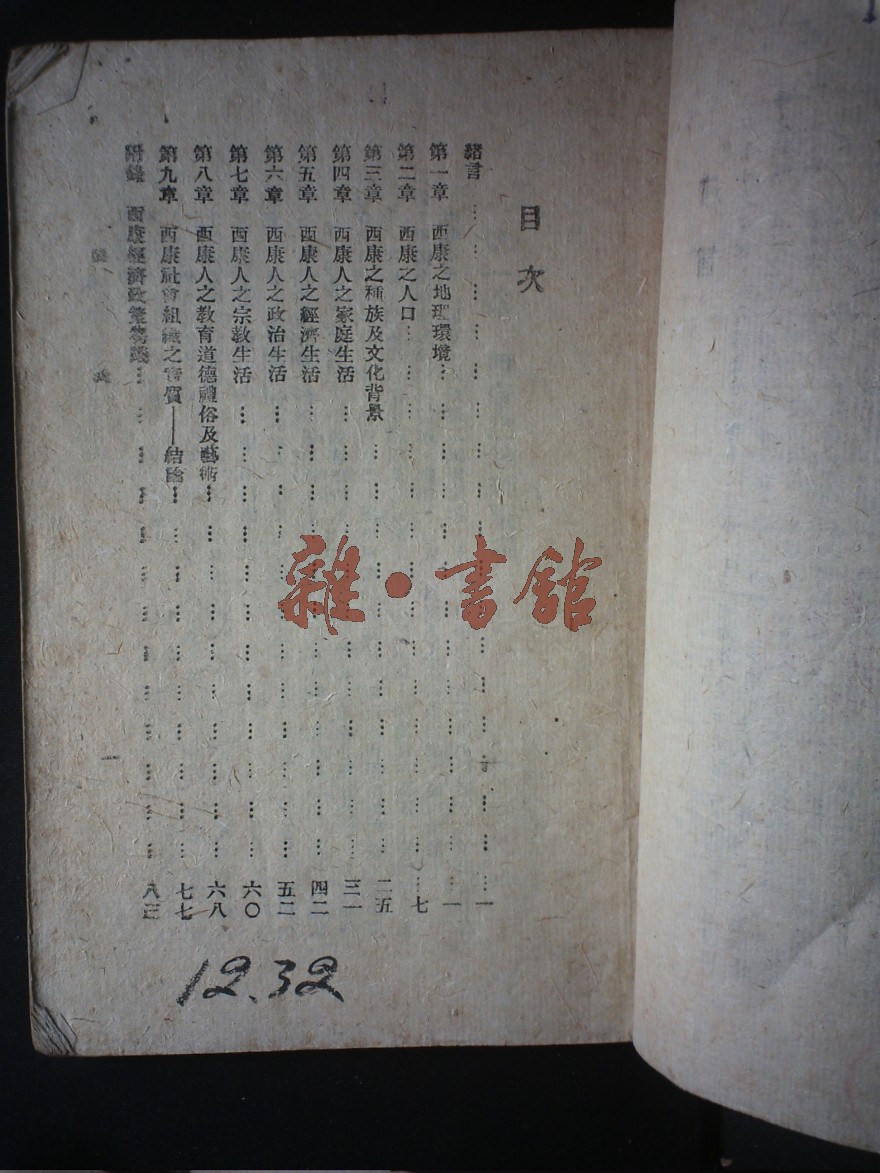 目次
緒言……………………………………一
第一章 西康之地理環境……………………一
第二章 西康之人口……………………七
第三章 西康之種族及文化背景……………………二五
第四章 西康人之家庭生活……………………三一
第五章 西康人之經濟生活……………………四二
第六章 西康人之政治生活……………………五二
第七章 西康人之宗教生活……………………六〇
第八章 西康人之教育道德禮俗及藝術……………………六八
第九章 西康社會組織之實質——結論……………………七七
附錄 西康經濟政策芻議……………………八三
一
12.32
雜·書館